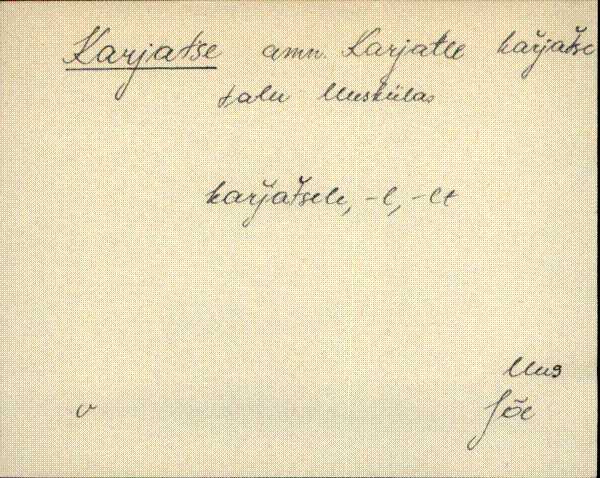 Karjatse amn. Karjatse kaŕjatse
talu Uuskülas
kaŕjatsele, -l, -lt
Uus
v Jõe